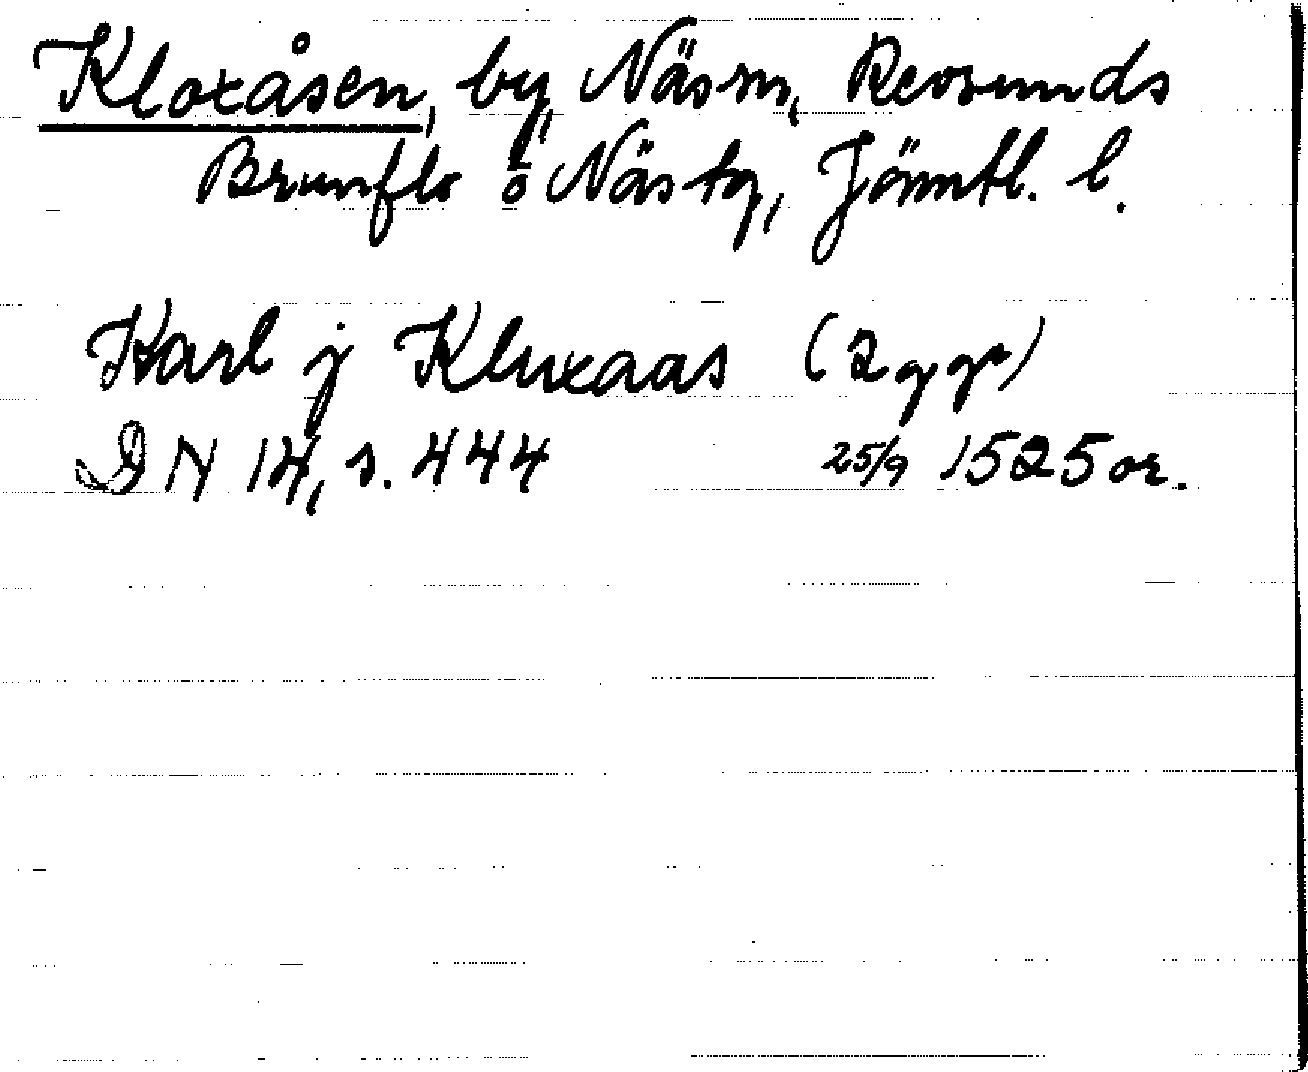 Kloxåsen, by, Näs sn, Revsunds
Brunflo o Näs tg, Jämtl. l.
Karl j Kluxaas (2 ggr)
DN 14, s. 444 25/9 1525 or.